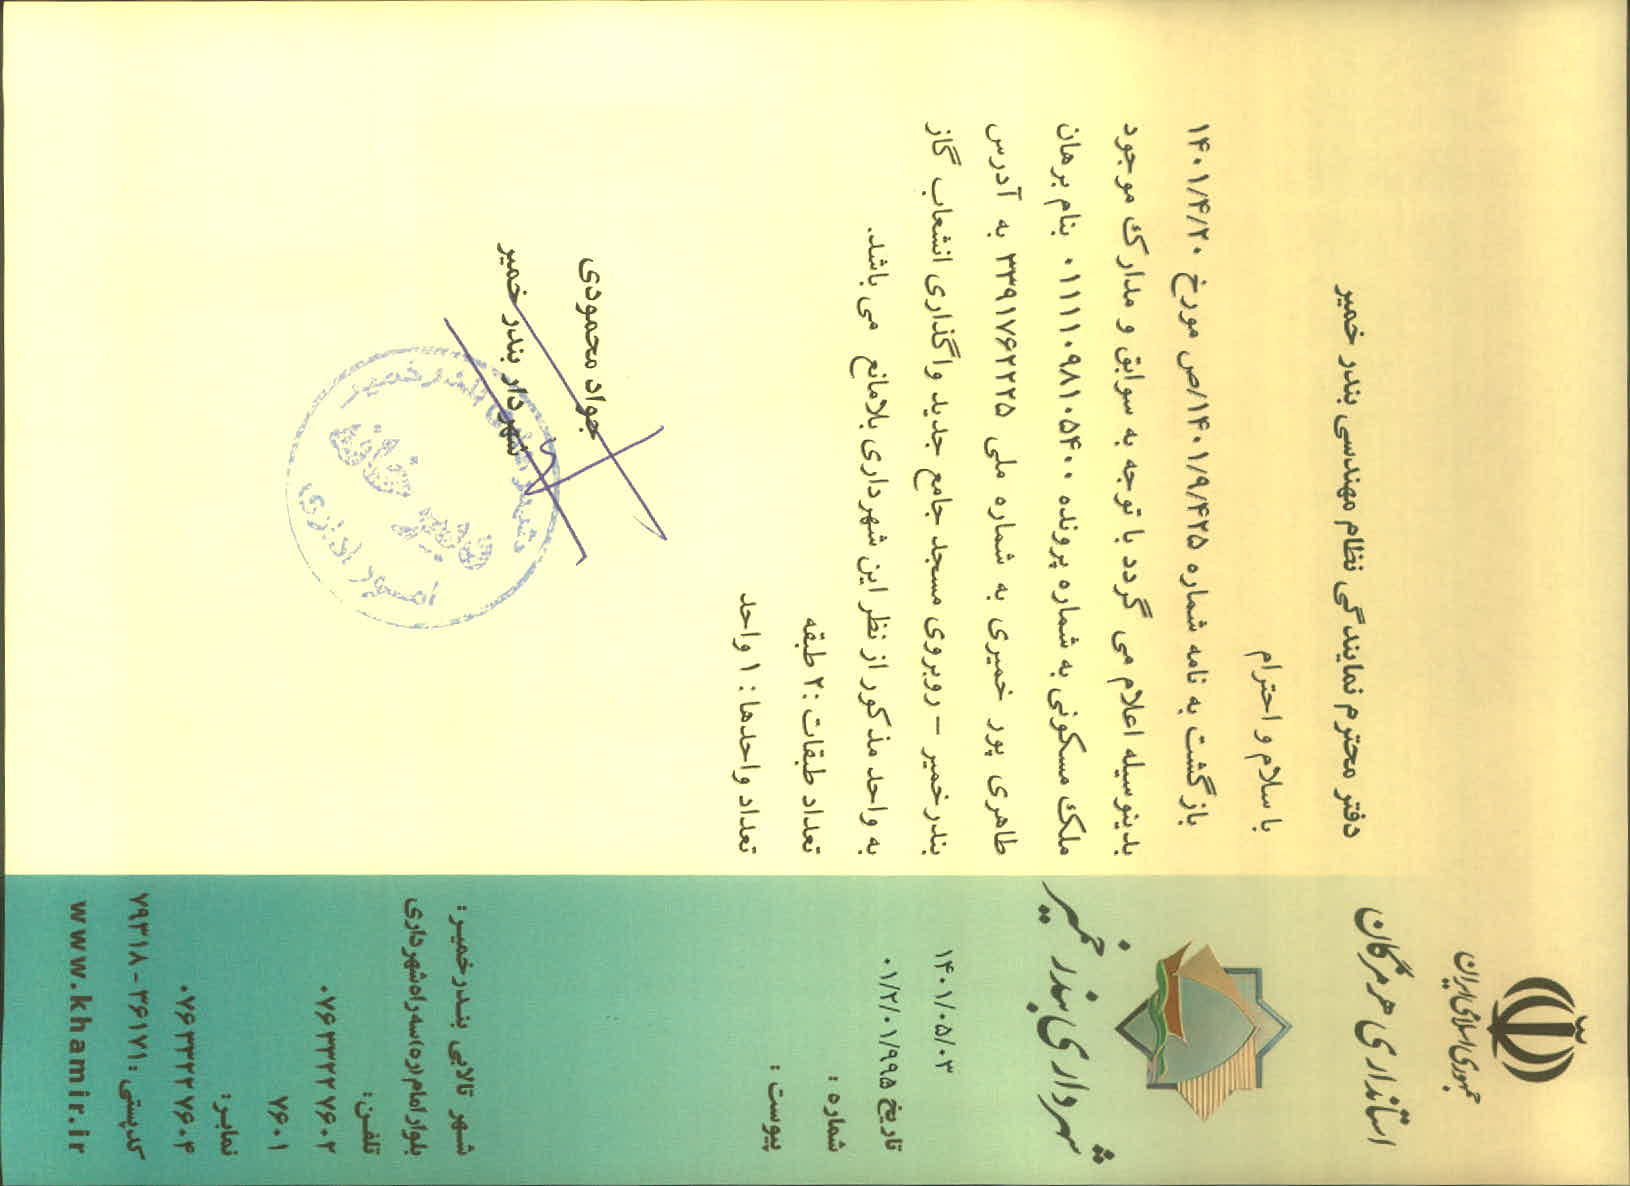 جمهوری اسلامی ایران
استانداری هرمزگان
شهرداری بندر خمیر
۱۴۰۱/۰۵/۰۳
تاریخ ۰۱/۲/۰۱/۹۹۵
شماره :
پیوست :
دفتر محترم نمایندگی نظام مهندسی بندر خمیر
با سلام و احترام
بازگشت به نامه شماره ۱۴۰۱/۹/۴۲۵/ص مورخ ۱۴۰۱/۴/۲۰
بدینوسیله اعلام می گردد با توجه به سوابق و مدارک موجود
ملک مسکونی به شماره پرونده ۰۱۱۱۱۰۹۸۱۰۵۴۰۰ بنام برهان
طاهری پور خمیری به شماره ملی ۳۳۹۱۷۶۲۲۲۵ به آدرس
بندرخمیر – روبروی مسجد جامع جدید واگذاری انشعاب گاز
به واحد مذکور از نظر این شهرداری بلامانع می باشد.
تعداد طبقات :۲ طبقه
تعداد واحدها : ۱ واحد
جواد محمودی
شهردار بندر خمیر
دبیرخانه
امور اداری
شهر تالابی بندرخمیر:
بلوار امام (ره) سه راه شهرداری
تلفن:
۰۷۶۳۳۲۲۷۶۰۲
۷۶۰۱
نمابر:
۰۷۶۳۳۲۲۷۶۰۴
کدپستی : ۳۶۱۷۱ - ۷۹۳۱۸
www.khamir.ir